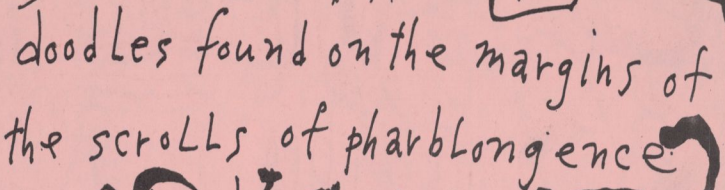 doodles found on the margins of
the scrolls of pharblongence